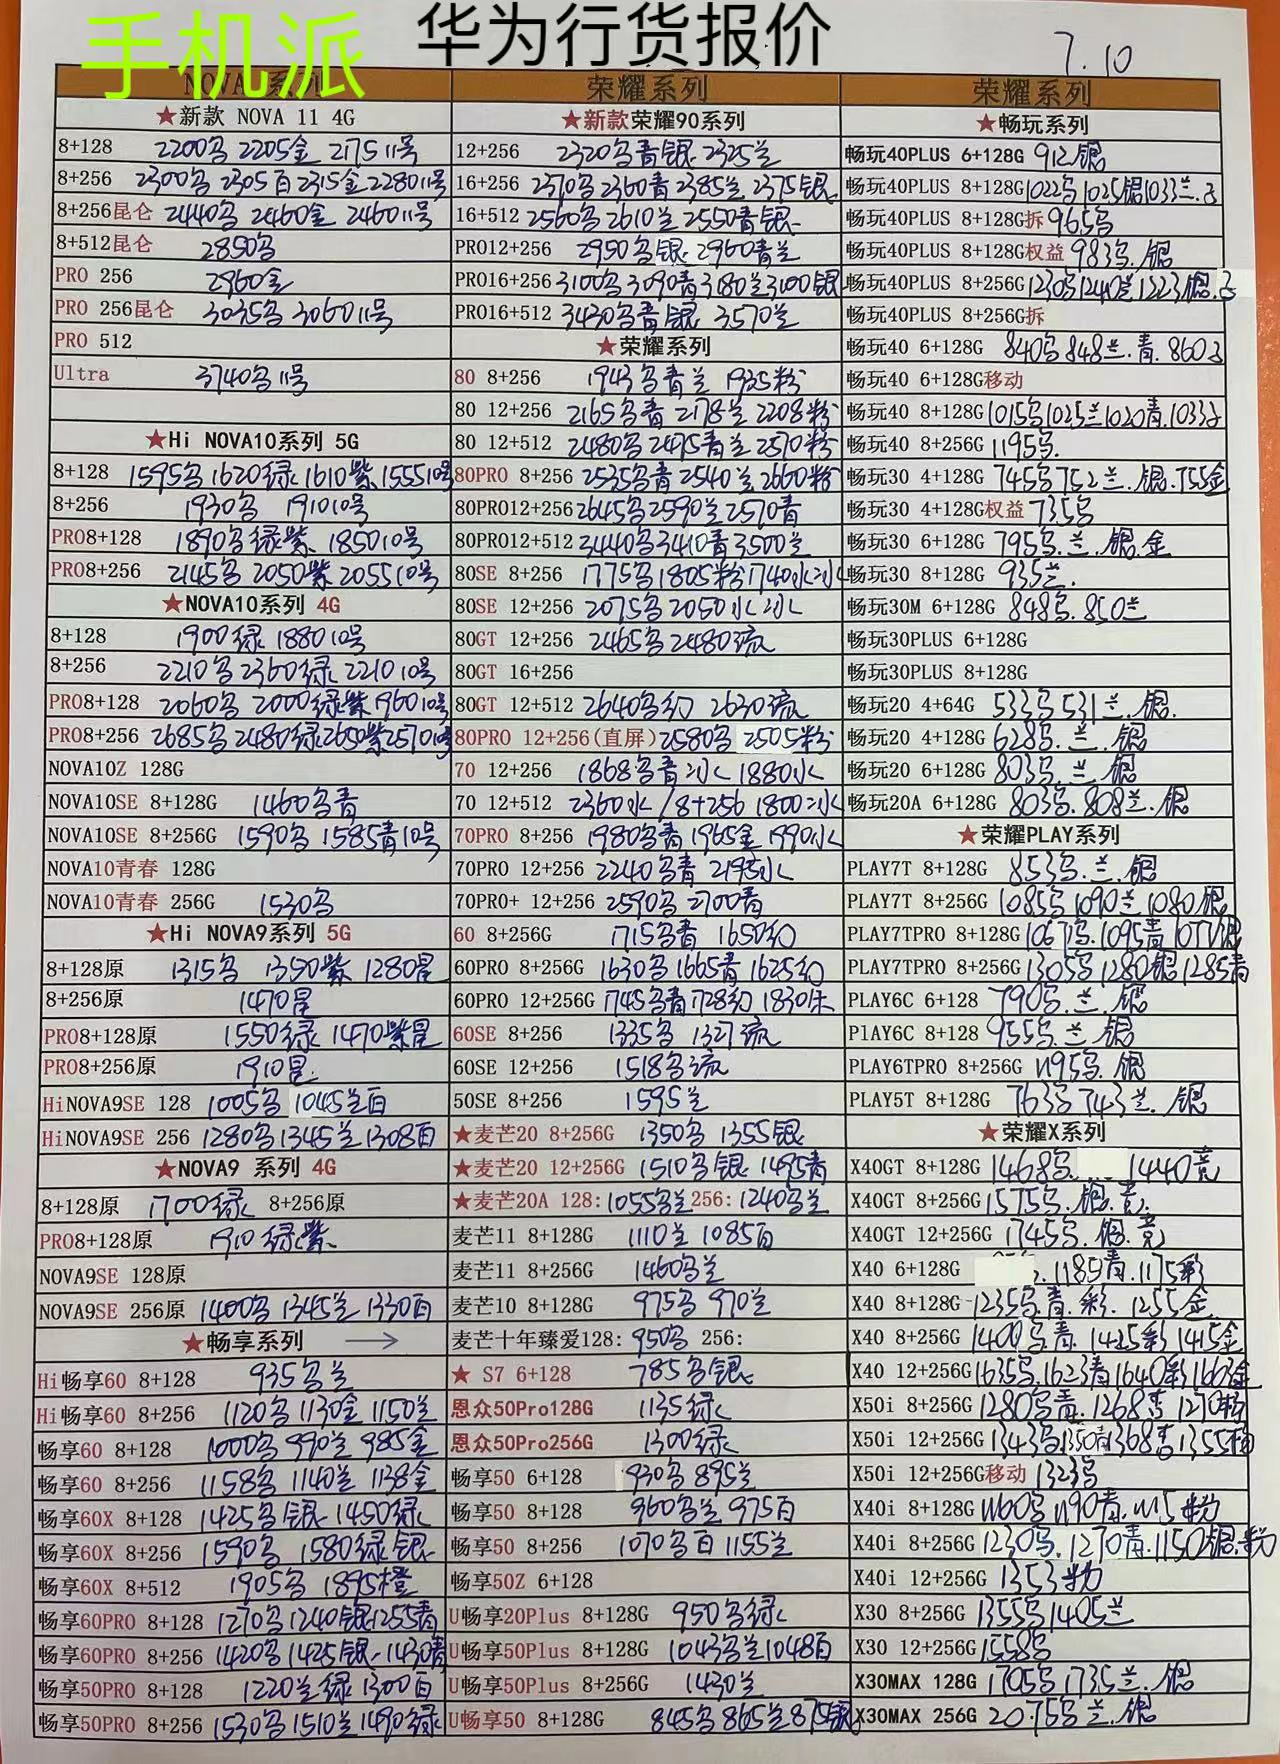 手机派
华为行货报价
7.10
NOVA系列
★新款 NOVA 11 4G
8+128 2200乌 2205金 2175 11号
8+256 2300乌 2305百 2315金 2280 11号
8+256昆仑 2440乌 2460金 2460 11号
8+512昆仑 2850乌
PRO 256 2960金
PRO 256昆仑 3035乌 3060 11号
PRO 512
Ultra 3740乌 11号
★Hi NOVA10系列 5G
8+128 1595乌 1620绿 1610紫 1555 10号
8+256 1930乌 1910 10号
PRO8+128 1890乌绿紫 1850 10号
PRO8+256 2145乌 2050紫 2055 10号
★NOVA10系列 4G
8+128 1900绿 1880 10号
8+256 2210乌 2360绿 2210 10号
PRO8+128 2060乌 2000绿紫 1960 10号
PRO8+256 2685乌 2480绿 2650紫 2570 10号
NOVA10Z 128G
NOVA10SE 8+128G 1460乌青
NOVA10SE 8+256G 1590乌 1585青10号
NOVA10青春 128G
NOVA10青春 256G 1530乌
★Hi NOVA9系列 5G
8+128原 1315乌 1350紫 1280星
8+256原 1470星
PRO8+128原 1550绿 1470紫星
PRO8+256原 1910星
HiNOVA9SE 128 1005乌 1045兰百
HiNOVA9SE 256 1280乌 1345兰 1308百
★NOVA9 系列 4G
8+128原 1700绿 8+256原
PRO8+128原 1910绿紫
NOVA9SE 128原
NOVA9SE 256原 1400乌 1345兰 1330百
★畅享系列 →
Hi畅享60 8+128 935乌兰
Hi畅享60 8+256 1120乌 1130金 1150兰
畅享60 8+128 1000乌 990兰 985金
畅享60 8+256 1158乌 1140兰 1138金
畅享60X 8+128 1425乌银 1450绿
畅享60X 8+256 1590乌 1580绿银
畅享60X 8+512 1905乌 1895橙
畅享60PRO 8+128 1270乌 1240银 1255青
畅享60PRO 8+256 1420乌 1425银 1430青
畅享50PRO 8+128 1220兰绿 1300百
畅享50PRO 8+256 1530乌 1510兰 1490绿
荣耀系列
★新款荣耀90系列
12+256 2320乌青银 2325兰
16+256 2370乌 2360青 2385兰 2375银
16+512 2560乌 2610兰 2550青银
PRO12+256 2950乌银 2960青兰
PRO16+256 3100乌 3090青 3180兰 3100银
PRO16+512 3430乌青银 3570兰
★荣耀系列
80 8+256 1943乌青兰 1935粉
80 12+256 2165乌青 2178兰 2208粉
80 12+512 2480乌 2495青兰 2570粉
80PRO 8+256 2535乌青 2540兰 2660粉
80PRO12+256 2645乌 2590兰 2570青
80PRO12+512 3440乌 3410青 3500兰
80SE 8+256 1775乌 1805粉 1740水冰
80SE 12+256 2075乌 2050水冰
80GT 12+256 2465乌 2480流
80GT 16+256
80GT 12+512 2640乌幻 2630流
80PRO 12+256(直屏) 2580乌 2505粉
70 12+256 1868乌青冰 1880水
70 12+512 2360水 / 8+256 1800冰
70PRO 8+256 1980乌青 1965金 1990水
70PRO 12+256 2240乌青 2195水
70PRO+ 12+256 2590乌 2700青
60 8+256G 1715乌青 1650幻
60PRO 8+256G 1630乌 1665青 1625幻
60PRO 12+256G 1745乌青 1728幻 1830朱
60SE 8+256 1335乌 1327流
60SE 12+256 1518乌流
50SE 8+256 1595兰
★麦芒20 8+256G 1350乌 1355银
★麦芒20 12+256G 1510乌银 1495青
★麦芒20A 128: 1055乌兰 256: 1240乌兰
麦芒11 8+128G 1110兰 1085百
麦芒11 8+256G 1460乌兰
麦芒10 8+128G 975乌 970兰
麦芒十年臻爱128: 950乌 256:
★ S7 6+128 785乌银
恩众50Pro128G 1135绿
恩众50Pro256G 1300绿
畅享50 6+128 930乌 895兰
畅享50 8+128 960乌兰 975百
畅享50 8+256 1070乌百 1155兰
畅享50Z 6+128
U畅享20Plus 8+128G 950乌绿
U畅享50Plus 8+128G 1043乌兰 1048百
U畅享50Plus 8+256G 1430兰
U畅享50 8+128G 845乌 865兰 875银
荣耀系列
★畅玩系列
畅玩40PLUS 6+128G 912银
畅玩40PLUS 8+128G 1022乌 1025银 1033兰
畅玩40PLUS 8+128G拆 965乌
畅玩40PLUS 8+128G权益 983乌.银
畅玩40PLUS 8+256G 1230乌 1240兰 1223银
畅玩40PLUS 8+256G拆
畅玩40 6+128G 840乌 848兰.青. 860
畅玩40 6+128G移动
畅玩40 8+128G 1015乌 1025兰 1020青. 1033
畅玩40 8+256G 1195乌.
畅玩30 4+128G 745乌 752兰.银.755金
畅玩30 4+128G权益 735乌
畅玩30 6+128G 795乌.兰.银.金
畅玩30 8+128G 935兰.
畅玩30M 6+128G 848乌. 850兰
畅玩30PLUS 6+128G
畅玩30PLUS 8+128G
畅玩20 4+64G 533乌 531兰.银.
畅玩20 4+128G 628乌.兰.银
畅玩20 6+128G 803乌.兰.银
畅玩20A 6+128G 803乌. 808兰.银
★荣耀PLAY系列
PLAY7T 8+128G 853乌.兰.银
PLAY7T 8+256G 1085乌 1090兰 1080银
PLAY7TPRO 8+128G 1067乌.1095青
PLAY7TPRO 8+256G 1305乌 1280银 1285青
PLAY6C 6+128 790乌.兰.银
PlAY6C 8+128 955乌.兰.银
PLAY6TPRO 8+256G 1195乌.银
PLAY5T 8+128G 763乌 743兰.银
★荣耀X系列
X40GT 8+128G 1468乌. 1440竞
X40GT 8+256G 1575乌.银.竞.
X40GT 12+256G 1745乌.银.竞
X40 6+128G .1185青.1175彩
X40 8+128G 1235乌.青.彩.1255金
X40 8+256G 1400乌.青.1425彩 1415金
X40 12+256G 1635乌.1623青 1640彩 1660金
X50i 8+256G 1280乌青.1268杏 1270粉
X50i 12+256G 1343乌 1350青 1368杏 1355粉
X50i 12+256G移动 1323乌
X40i 8+128G 1160乌 1190青.1115粉
X40i 8+256G 1230乌.1270青.1150银.粉
X40i 12+256G 1353粉
X30 8+256G 1355乌 1405兰
X30 12+256G 1558乌
X30MAX 128G 1705乌 1735兰.银
X30MAX 256G 2075乌.兰.银